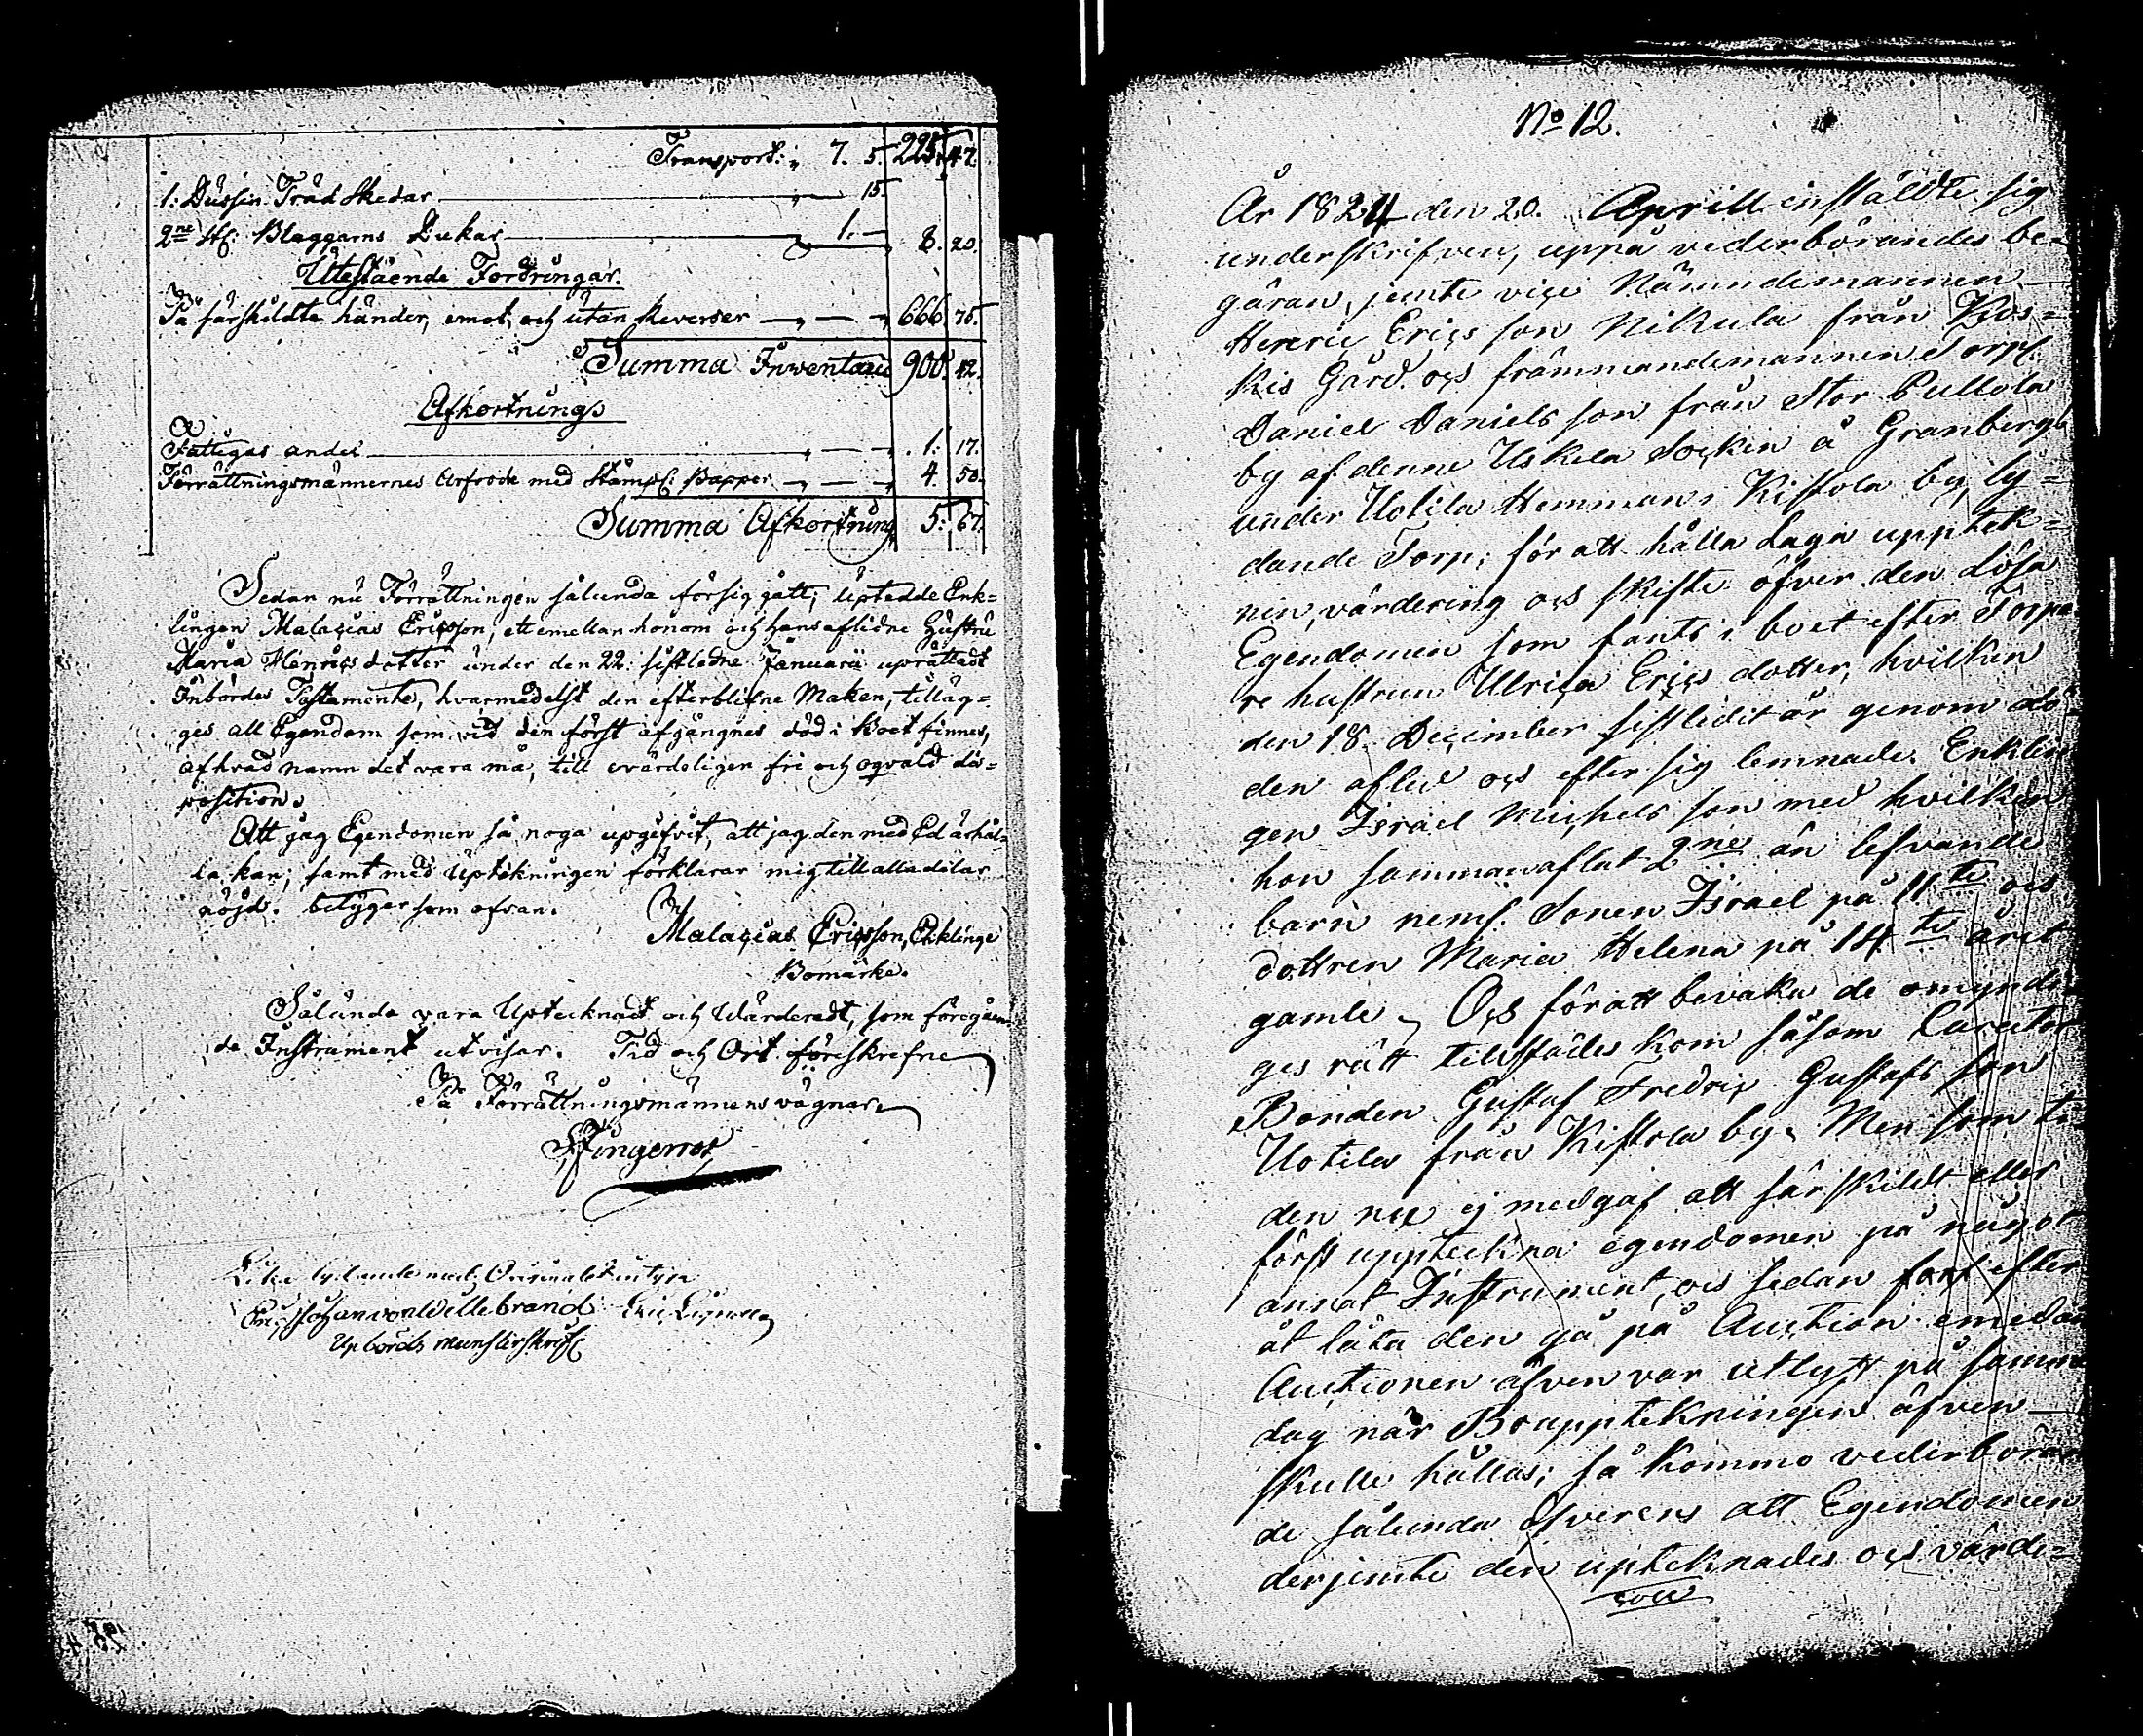 Transport: „ 7. 5. 225. 47.
1: Dussin Träd Skedar „ 15.
2ne st: Blaggarns Dukar „ 1. — 8. 20.
Utestående Fordringar.
På särskildte händer, emot och utan Reverser „ — „ 666. 75.
Summa Inventarii 900. 42.
Afkortnings
Fattigas andel „ — „ 1: 17.
Förrättningsmännernes Arfvode med Stämpl: Papper „ — „ 4. 50.
Summa Afkortning 5: 67.
Sedan nu Förrättningen sålunda försiggått; Uptedde Enk=
lingen Malaçias Ericsson, ett emellan honom och hans aflidne Hustru
Maria Henricsdotter under den 22: sistledne Januarii uprättadt
Inbördes Testamente, hvarmedelst den efterblifne Maken, tilläg=
ges all Egendom som vid den först afgångnes död i Boet finnes,
af hvad namn det vara må, till evärdeligen fri och oqvald dis=
position.
Att jag Egendomen så noga upgifvit, att jag den med Ed erhål=
la kan; samt med Uptekningen förklarar mig till alla delar
nöjd. betyger som ofvan.
Malaçias Ericsson, Enklinge
Bomärke.
Sålunda vara Upteknadt och Wärderadt, som föregåen=
de Instrument utvisar. Tid och Ort föreskrefne
På Förrättningsmännens vägnar
Ljungerrot
Lika lydande med Originalet intyga
Johan von Willebrand Eric
Upbörds
No 12.
År 1824 den 20. Aprill instäldte sig
underskrifven, uppå vederbörandes be=
gäran, jemte vice Nämndemannen
Henric Ericsson Nikula från Kos=
kis Gård. och främmandemannen Torp:
Daniel Danielsson från Stor Pullola
by af denne Uskela Socken å Granbergs
under Uotila Hemman i Kistola by, ly=
dande Torp; för att hålla Laga upptek=
nin, värdering och skifte öfver den Lösa
Egendomen som fants i boet efter Torpa
re hustrun Ulrica Erics dotter, hvilken
den 18 December sistledit år genom dö=
den afled och efter sig lemnade Enklin
gen Israel Michels son med hvilken
hon sammanaflat 2ne än lefvande
barn neml. Sonen Israel på 11te och
dottren Maria Helena på 14te året
gamle, Och för att bevaka de omyndi
ges rätt tillstädes kom såsom Curator
Bonden Gustaf Fredric Gustafs son
Uotila från Kistola by. Men som ti
den nu ej medgaf att särskildt eller
först upptekna egendomen på något
annat Instrument, och sedan fort efter
åt låta den gå på Auction emedan
Auctionen äfven var utlyst på samma
dag när Bouppteknïngen äfven
skulle hållas; så kommo vederböran
de sålunda öfverens att Egendomen
derjemte den upteknades och värde=